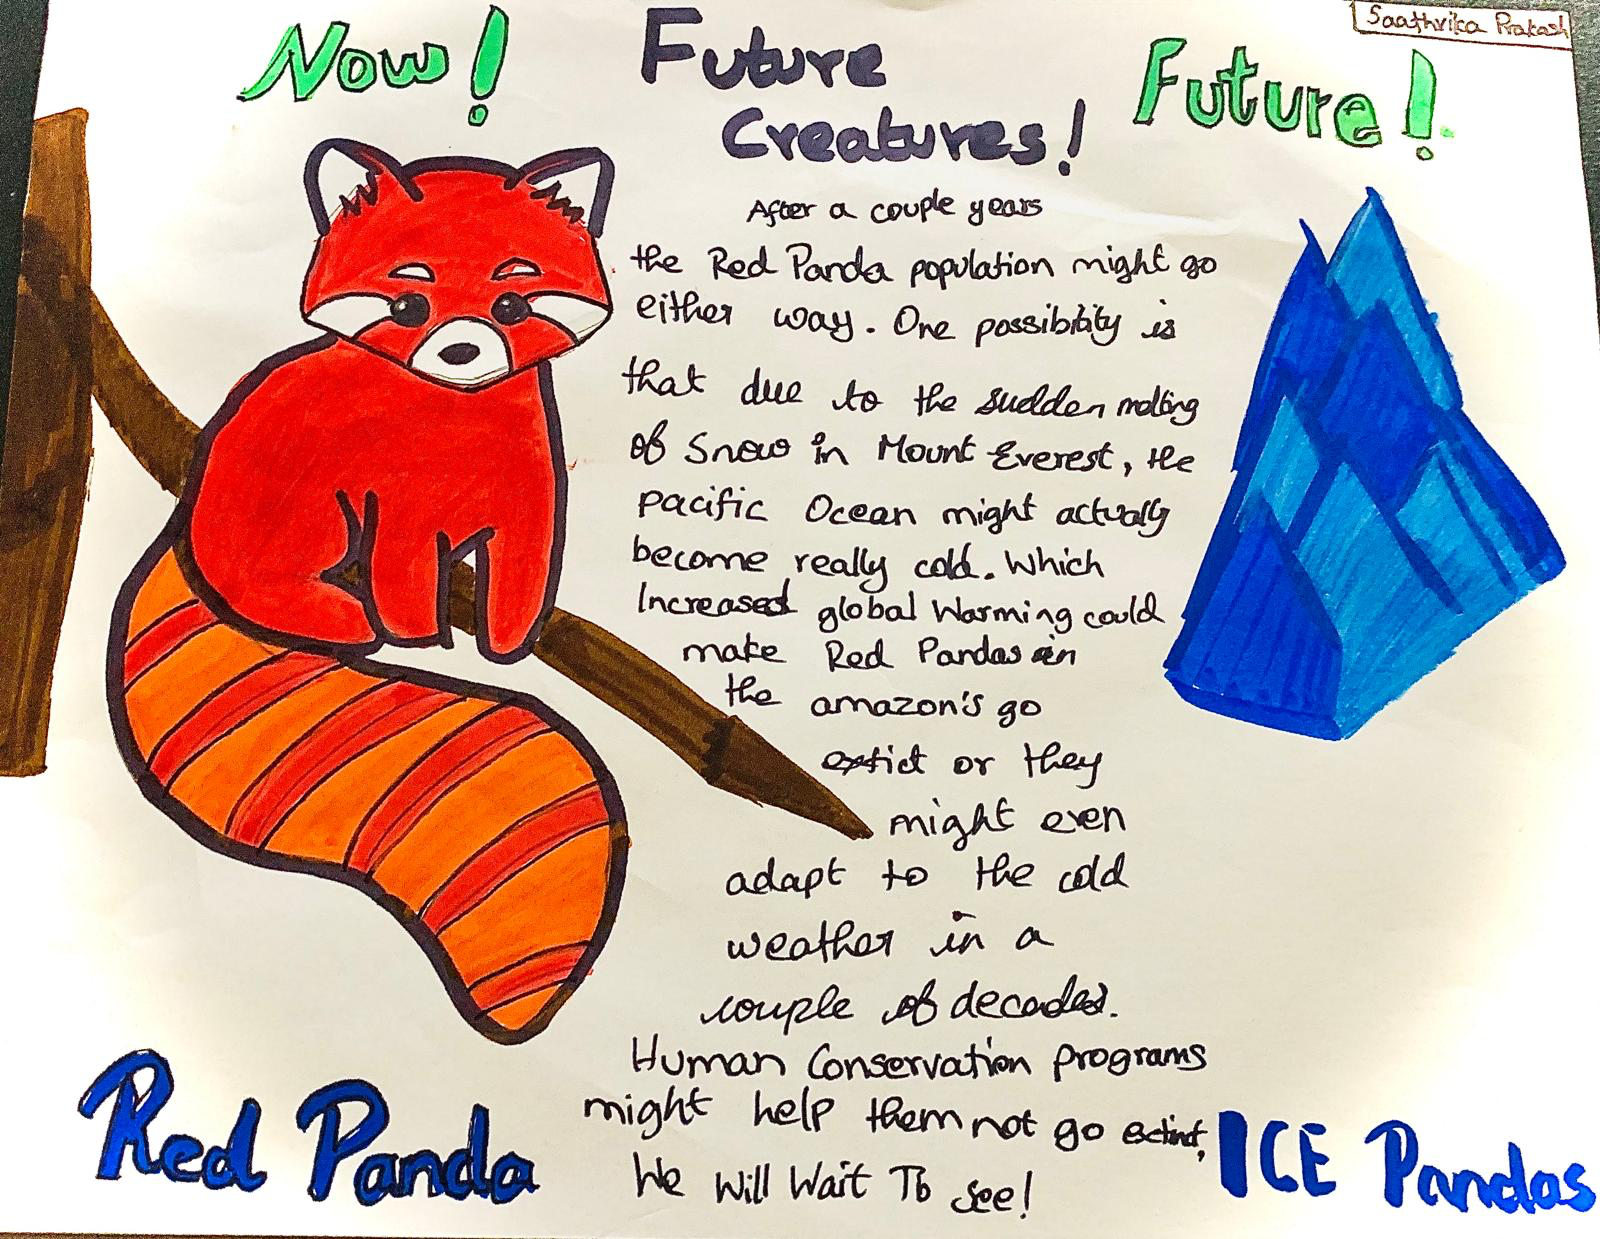 Saathrika Prakash
Now!
Future
Creatures!
Future!
After a couple years
the Red Panda population might go
either way. One possibility is
that due to the sudden melting
of Snow in Mount Everest, the
pacific Ocean might actually
become really cold. Which
Increased global Warming could
make Red Pandas in
the amazon's go
extict or they
might even
adapt to the cold
weather in a
couple of decades.
Human Conservation programs
might help them not go extinct,
We Will Wait To see!
Red Panda
ICE Pandas